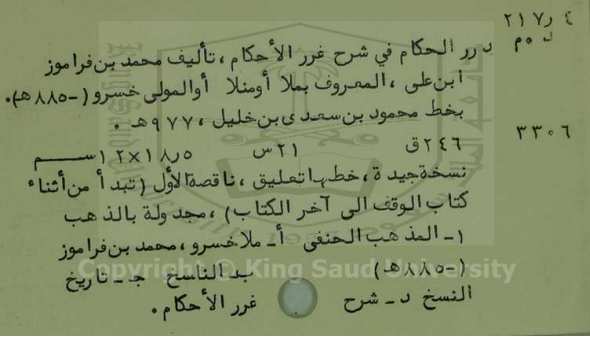 ٢١٧٫٤
د ٠م درر الحكام في شرح غرر الأحكام ، تأليف محمد بن فراموز
ابن على ، المعروف بملا أو منلا أو المولى خسرو (-٨٨٥هـ).
بخط محمود بن سعدى بن خليل ، ٩٧٧هـ .
٣٣٠٦
٢٤٦ق ٢١س ١٨٫٥×١٢سم
نسخة جيدة ، خطها تعليق ، ناقصة الأول (تبدأ من أثناء
كتاب الوقف الى آخر الكتاب) ، مجدولة بالذهب
١- المذهب الحنفى أ- ملا خسرو ، محمد بن فراموز
(-٨٨٥هـ) ب- الناسخ ج- تاريخ
النسخ د- شرح غرر الأحكام .
Copyright © King Saud University